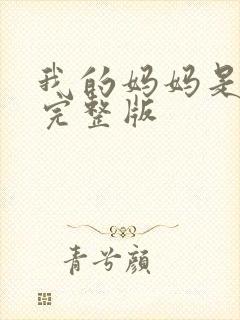 我的妈妈是
完整版
青兮颜